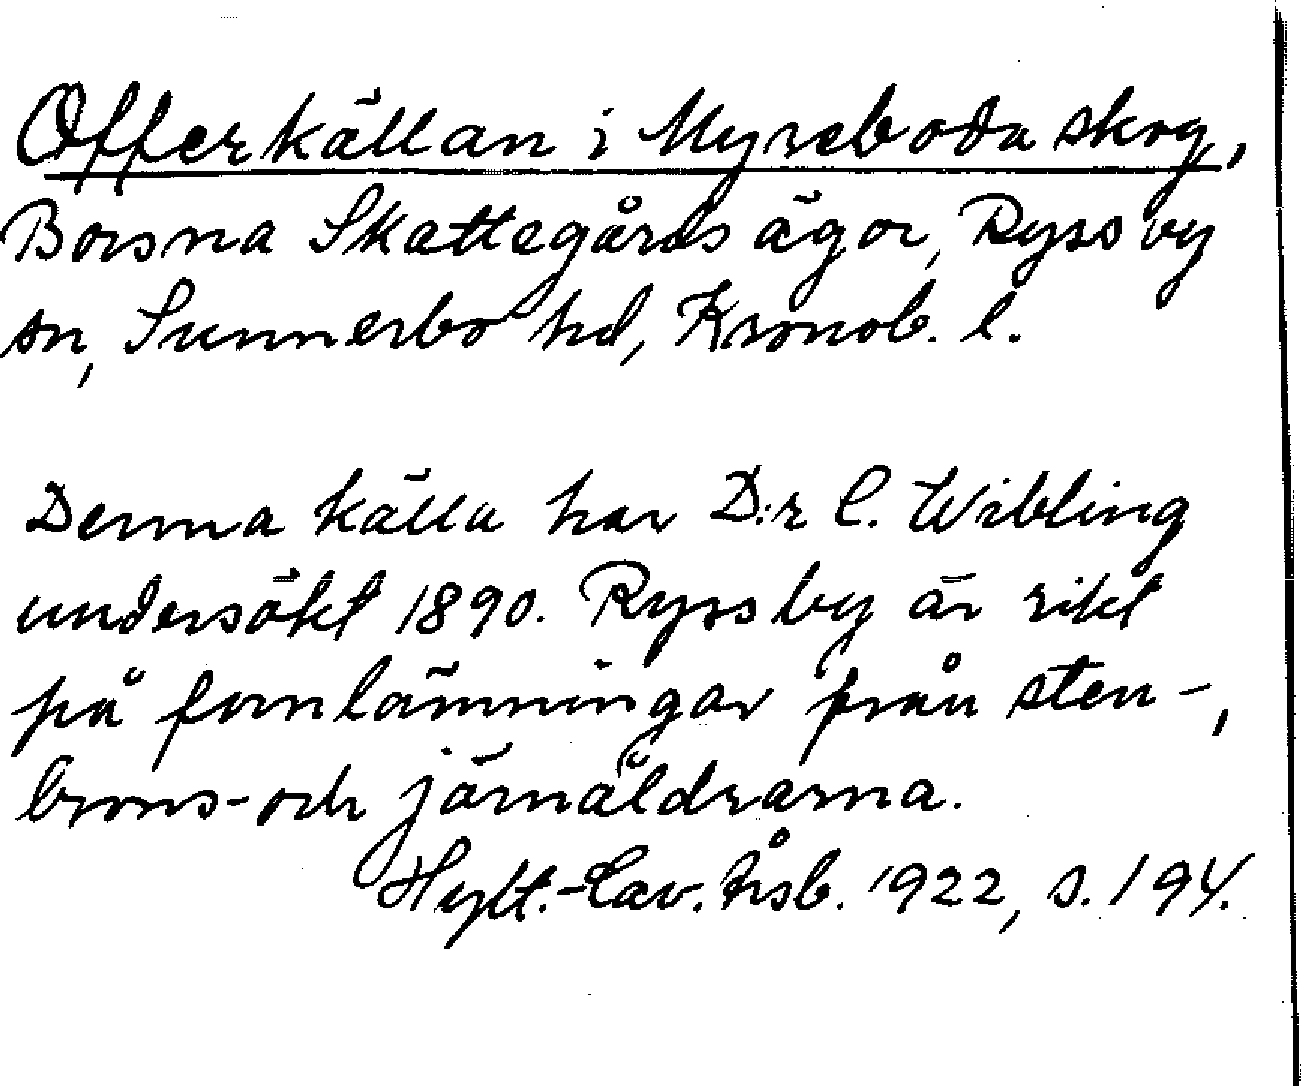 Offerkällan i Myreboda skog,
Borsna Skattegårds ägor, Ryssby
sn, Sunnerbo hd, Kronob. l.
Denna källa har D:r C. Wibling
undersökt 1890. Ryssby är rikt
på fornlämningar från sten-,
brons- och järnåldrarna.
Hylt.-Cav. Årsb. 1922, s. 194.